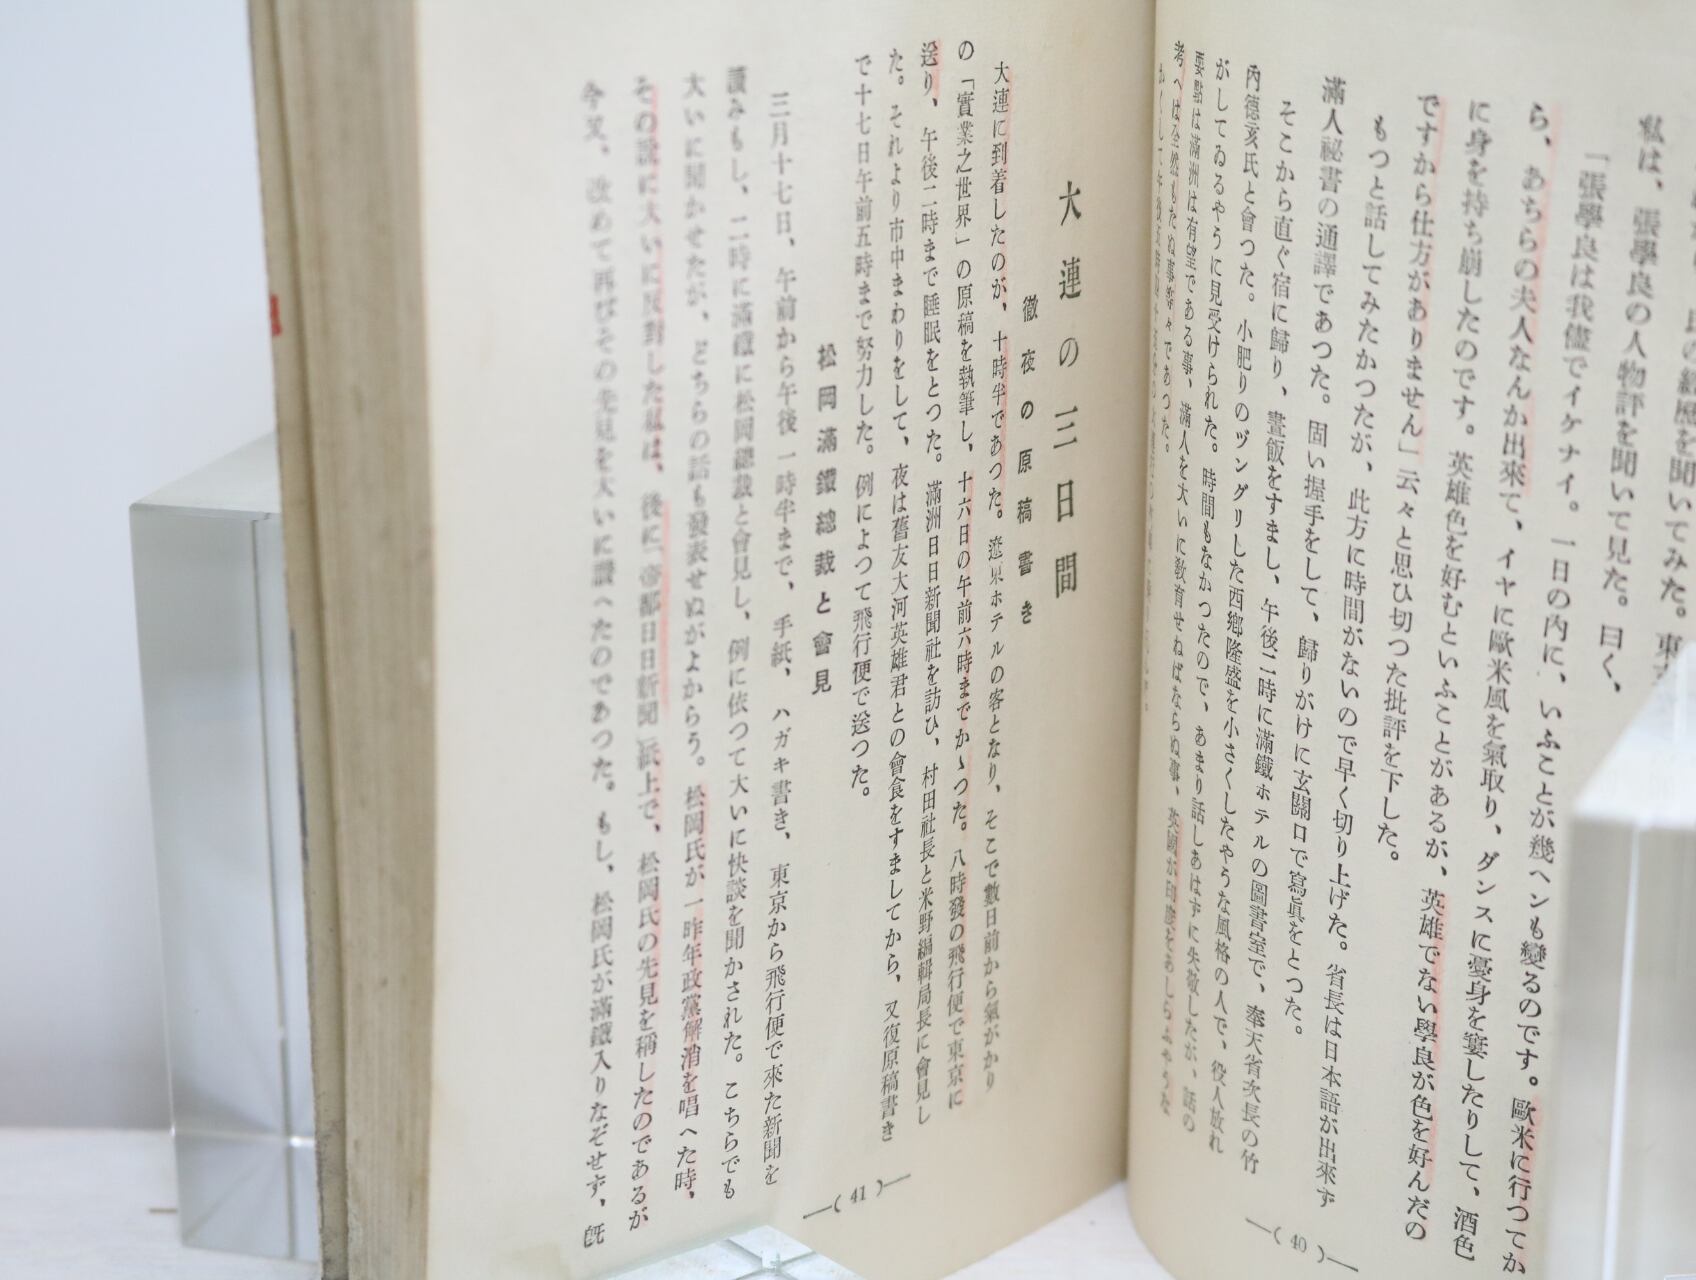 の經歷を聞いてみた。東
私は、張學良の人物評を聞いて見た。曰く、
「張學良は我儘でイケナイ。一日の內に、いふことが幾ヘンも變るのです。歐米に行つてか
ら、あちらの夫人なんか出來て、イヤに歐米風を氣取り、ダンスに憂身を窶したりして、酒色
に身を持ち崩したのです。英雄色を好むといふことがあるが、英雄でない學良が色を好んだの
ですから仕方がありません」云々と思ひ切つた批評を下した。
もつと話してみたかつたが、此方に時間がないので早く切り上げた。省長は日本語が出來ず
滿人祕書の通譯であつた。固い握手をして、歸りがけに玄關口で寫眞をとつた。
そこから直ぐ宿に歸り、晝飯をすまし、午後二時に滿鐵ホテルの圖書室で、奉天省次長の竹
內德亥氏と會つた。小肥りのヅングリした西鄕隆盛を小さくしたやうな風格の人で、役人放れ
がしてゐるやうに見受けられた。時間もなかつたので、あまり話しあはずに失敬したが、話の
要點は滿洲は有望である事、滿人を大いに敎育せねばならぬ事、英國が印度をあしらふやうな
考へは全然もたぬ事等々であつた。
—( 40 )—
大連の三日間
徹夜の原稿書き
大連に到着したのが、十時半であつた。遼東ホテルの客となり、そこで數日前から氣がかり
の「實業之世界」の原稿を執筆し、十六日の午前六時までかゝつた。八時發の飛行便で東京に
送り、午後二時まで睡眠をとつた。滿洲日日新聞社を訪ひ、村田社長と米野編輯局長に會見し
た。それより市中まわりをして、夜は舊友大河英雄君との會食をすましてから、又復原稿書き
で十七日午前五時まで努力した。例によつて飛行便で送つた。
松岡滿鐵總裁と會見
三月十七日、午前から午後一時半まで、手紙、ハガキ書き、東京から飛行便で來た新聞を
讀みもし、二時に滿鐵に松岡總裁と會見し、例に依つて大いに快談を聞かされた。こちらでも
大いに聞かせたが、どちらの話も發表せぬがよからう。松岡氏が一昨年政黨解消を唱へた時、
その說に大いに反對した私は、後に「帝都日日新聞」紙上で、松岡氏の先見を稱したのであるが
今又、改めて再びその先見を大いに讃へたのであつた。もし、松岡氏が滿鐵入りなぞせず、旣
—( 41 )—